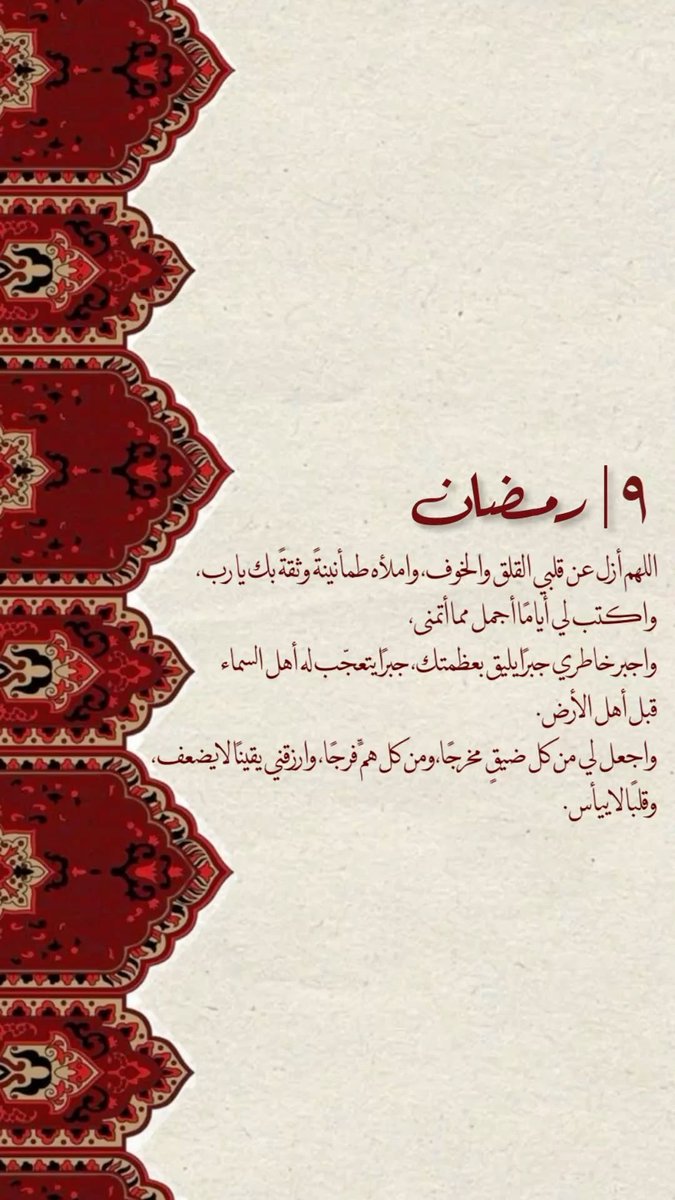 ٩ | رمضان
اللهم أزل عن قلبي القلق والخوف، واملأه طمأنينةً وثقةً بك يا رب،
واكتب لي أيامًا أجمل مما أتمنى،
واجبر خاطري جبرًا يليق بعظمتك، جبرًا يتعجّب له أهل السماء
قبل أهل الأرض.
واجعل لي من كل ضيقٍ مخرجًا، ومن كل همٍّ فرجًا، وارزقني يقينًا لا يضعف،
وقلبًا لا ييأس.